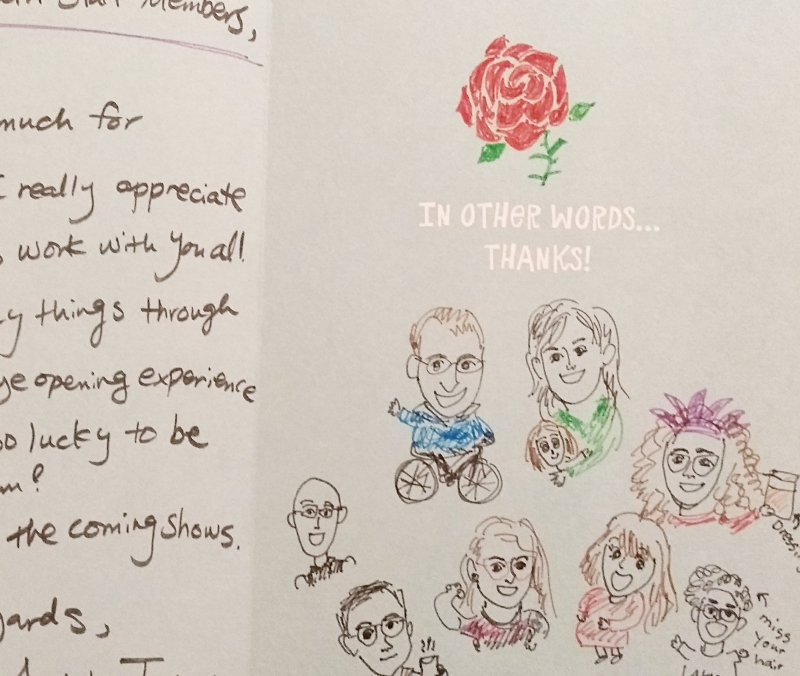 Members,
much for
I really appreciate
work with you all!
things through
opening experience
lucky to be
the coming shows.
IN OTHER WORDS...
THANKS!
miss
your
hair